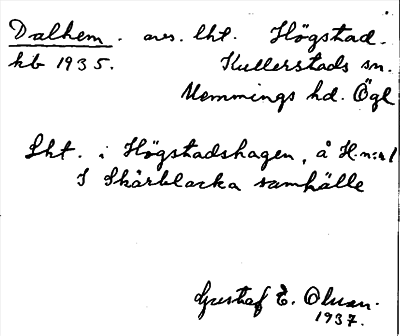 Dalhem. avs. lht. Högstad.
kb 1935. Kullerstads sn.
Memmings hd. Ögl
Lht. i Högstadshagen, å H. n:r 1
I Skärblacka samhälle
Gustaf E. Olsson.
1937.